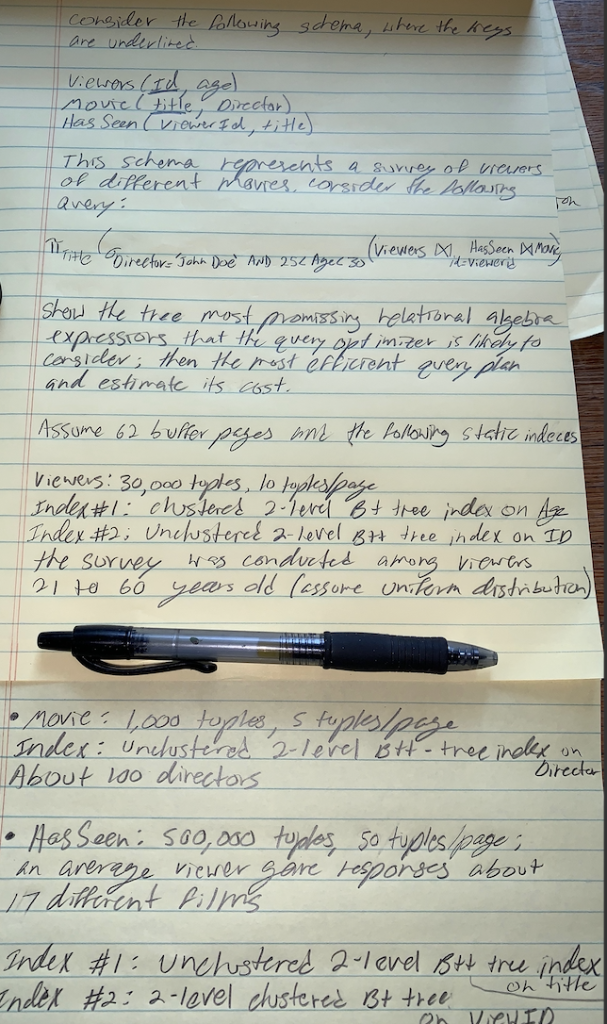 Consider the following schema, where the keys
are underlined.
Viewers (Id, age)
Movie (title, Director)
Has Seen (ViewerId, title)
This schema represents a survey of viewers
of different movies. Consider the following
query:
π Title (σ Director='John Doe' AND 25< Age< 30 (Viewers ⋈ id=viewerid HasSeen ⋈ Movie
Show the tree most promissing relational algebra
expressions that the query optimizer is likely to
consider; then the most efficient query plan
and estimate its cost.
on
Assume 62 buffer pages and the following static indeces
Viewers: 30,000 tuples, 10 tuples/page
Index #1: clustered 2-level B+ tree index on Age
Index #2: Unclustered 2-level B++ tree index on ID
the survey was conducted among viewers
21 to 60 years old (assume uniform distribution)
• Movie: 1,000 tuples, 5 tuples/page
Index: Unclustered 2-level B++-tree index on
Director
About 100 directors
• HasSeen: 500,000 tuples, 50 tuples/page;
an average viewer gave responses about
17 different films
Index #1: Unclustered 2-level B++ tree index
on title
Index #2: 2-level clustered B+ tree
on ViewID